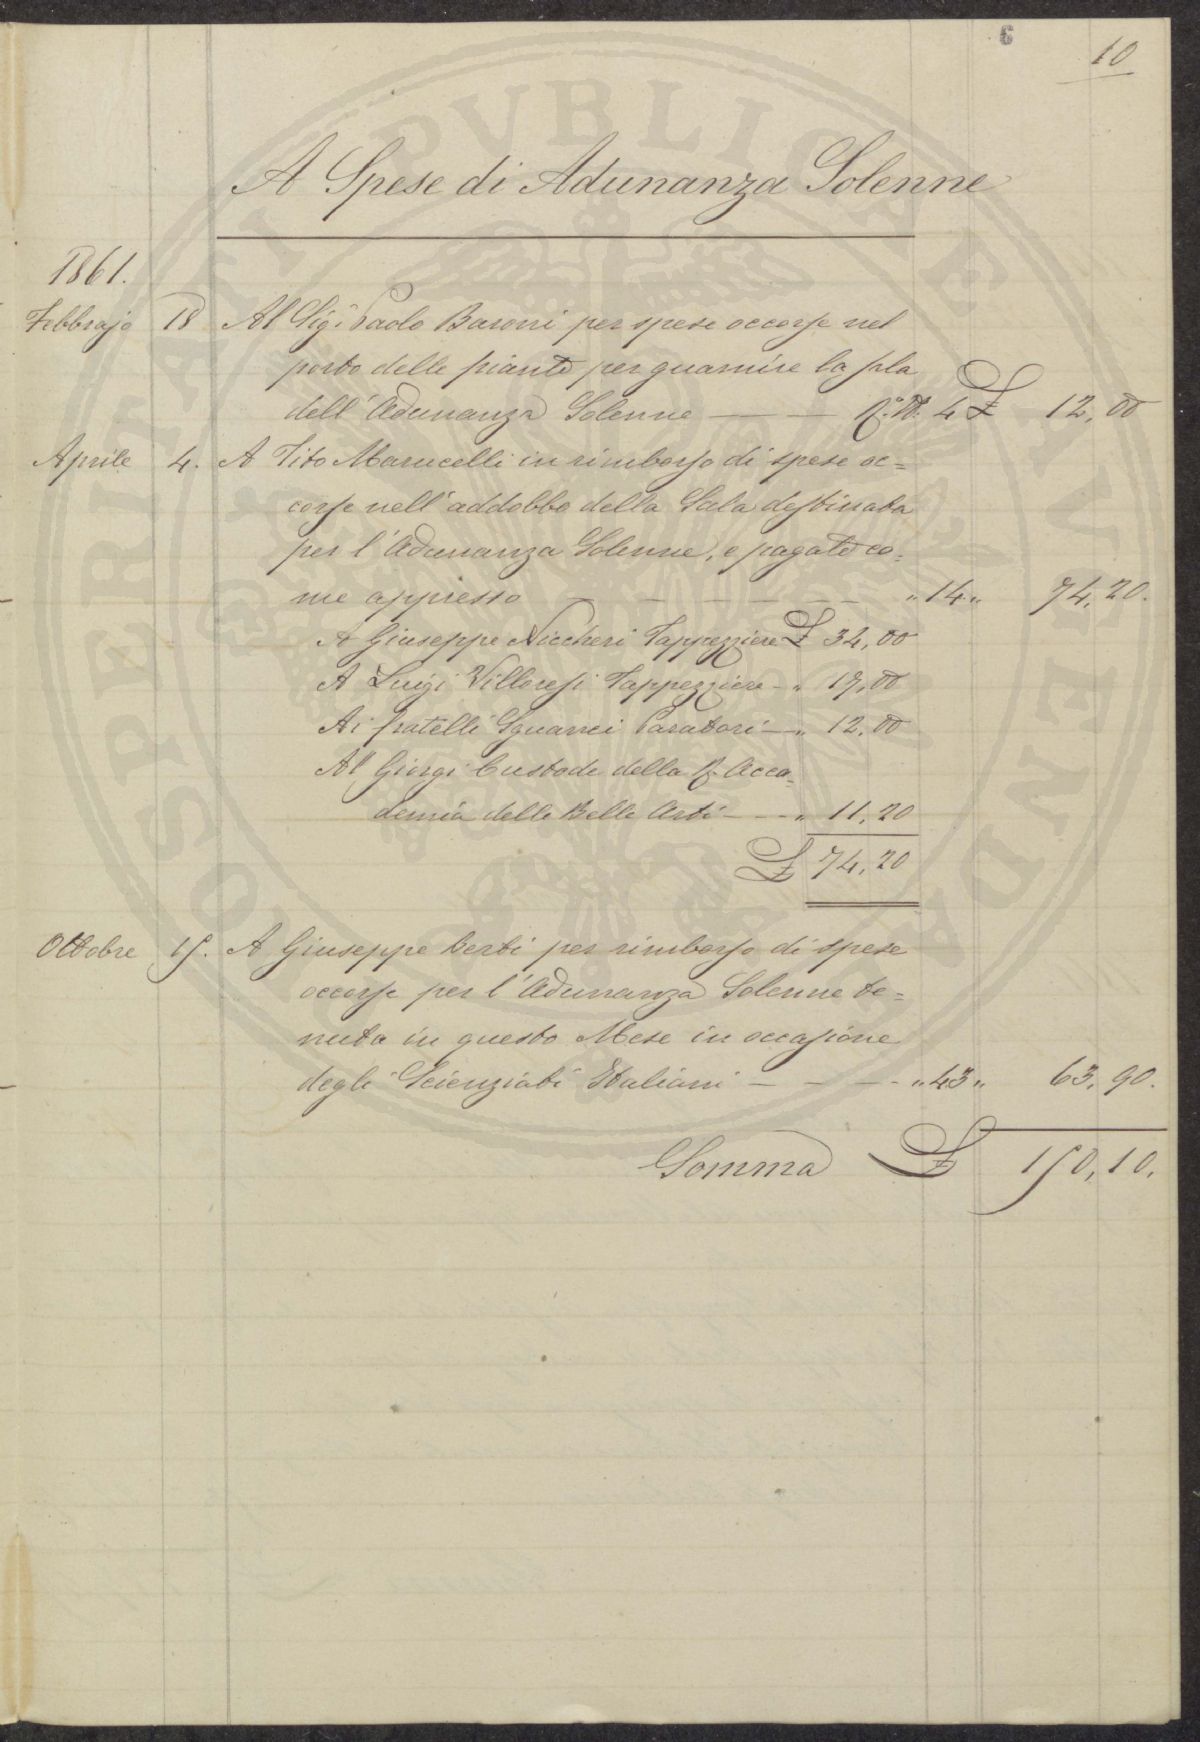 6
10
A Spese di Adunanza Solenne
1861.
Febbrajo 18 Al Sig. Paolo Baroni per spese occorse nel
porto delle piante per guarnire la sala
dell'Adunanza Solenne — — R.º N. 4 £ 12,00
Aprile 4. A Tito Marucelli in rimborso di spese oc=
corse nell'addobbo della Sala destinata
per l'Adunanza Solenne, e pagate co=
me appresso — — — — — — " 14 " 74,20.
A Giuseppe Niccheri Tappezziere £ 34,00
A Luigi Villoresi Tappezziere — " 17,00
Ai fratelli Sguanci Paratori — " 12,00
Al Giorgi Custode della R. Acca=
demia delle Belle Arti — — " 11,20
£ 74,20
Ottobre 15. A Giuseppe Berti per rimborso di spese
occorse per l'Adunanza Solenne te=
nuta in questo Mese in occasione
degli Scienziati Italiani — — — — " 43 " 63,90.
Somma £ 150,10.
PROSPERITATI PVBLICAE AVGENDAE